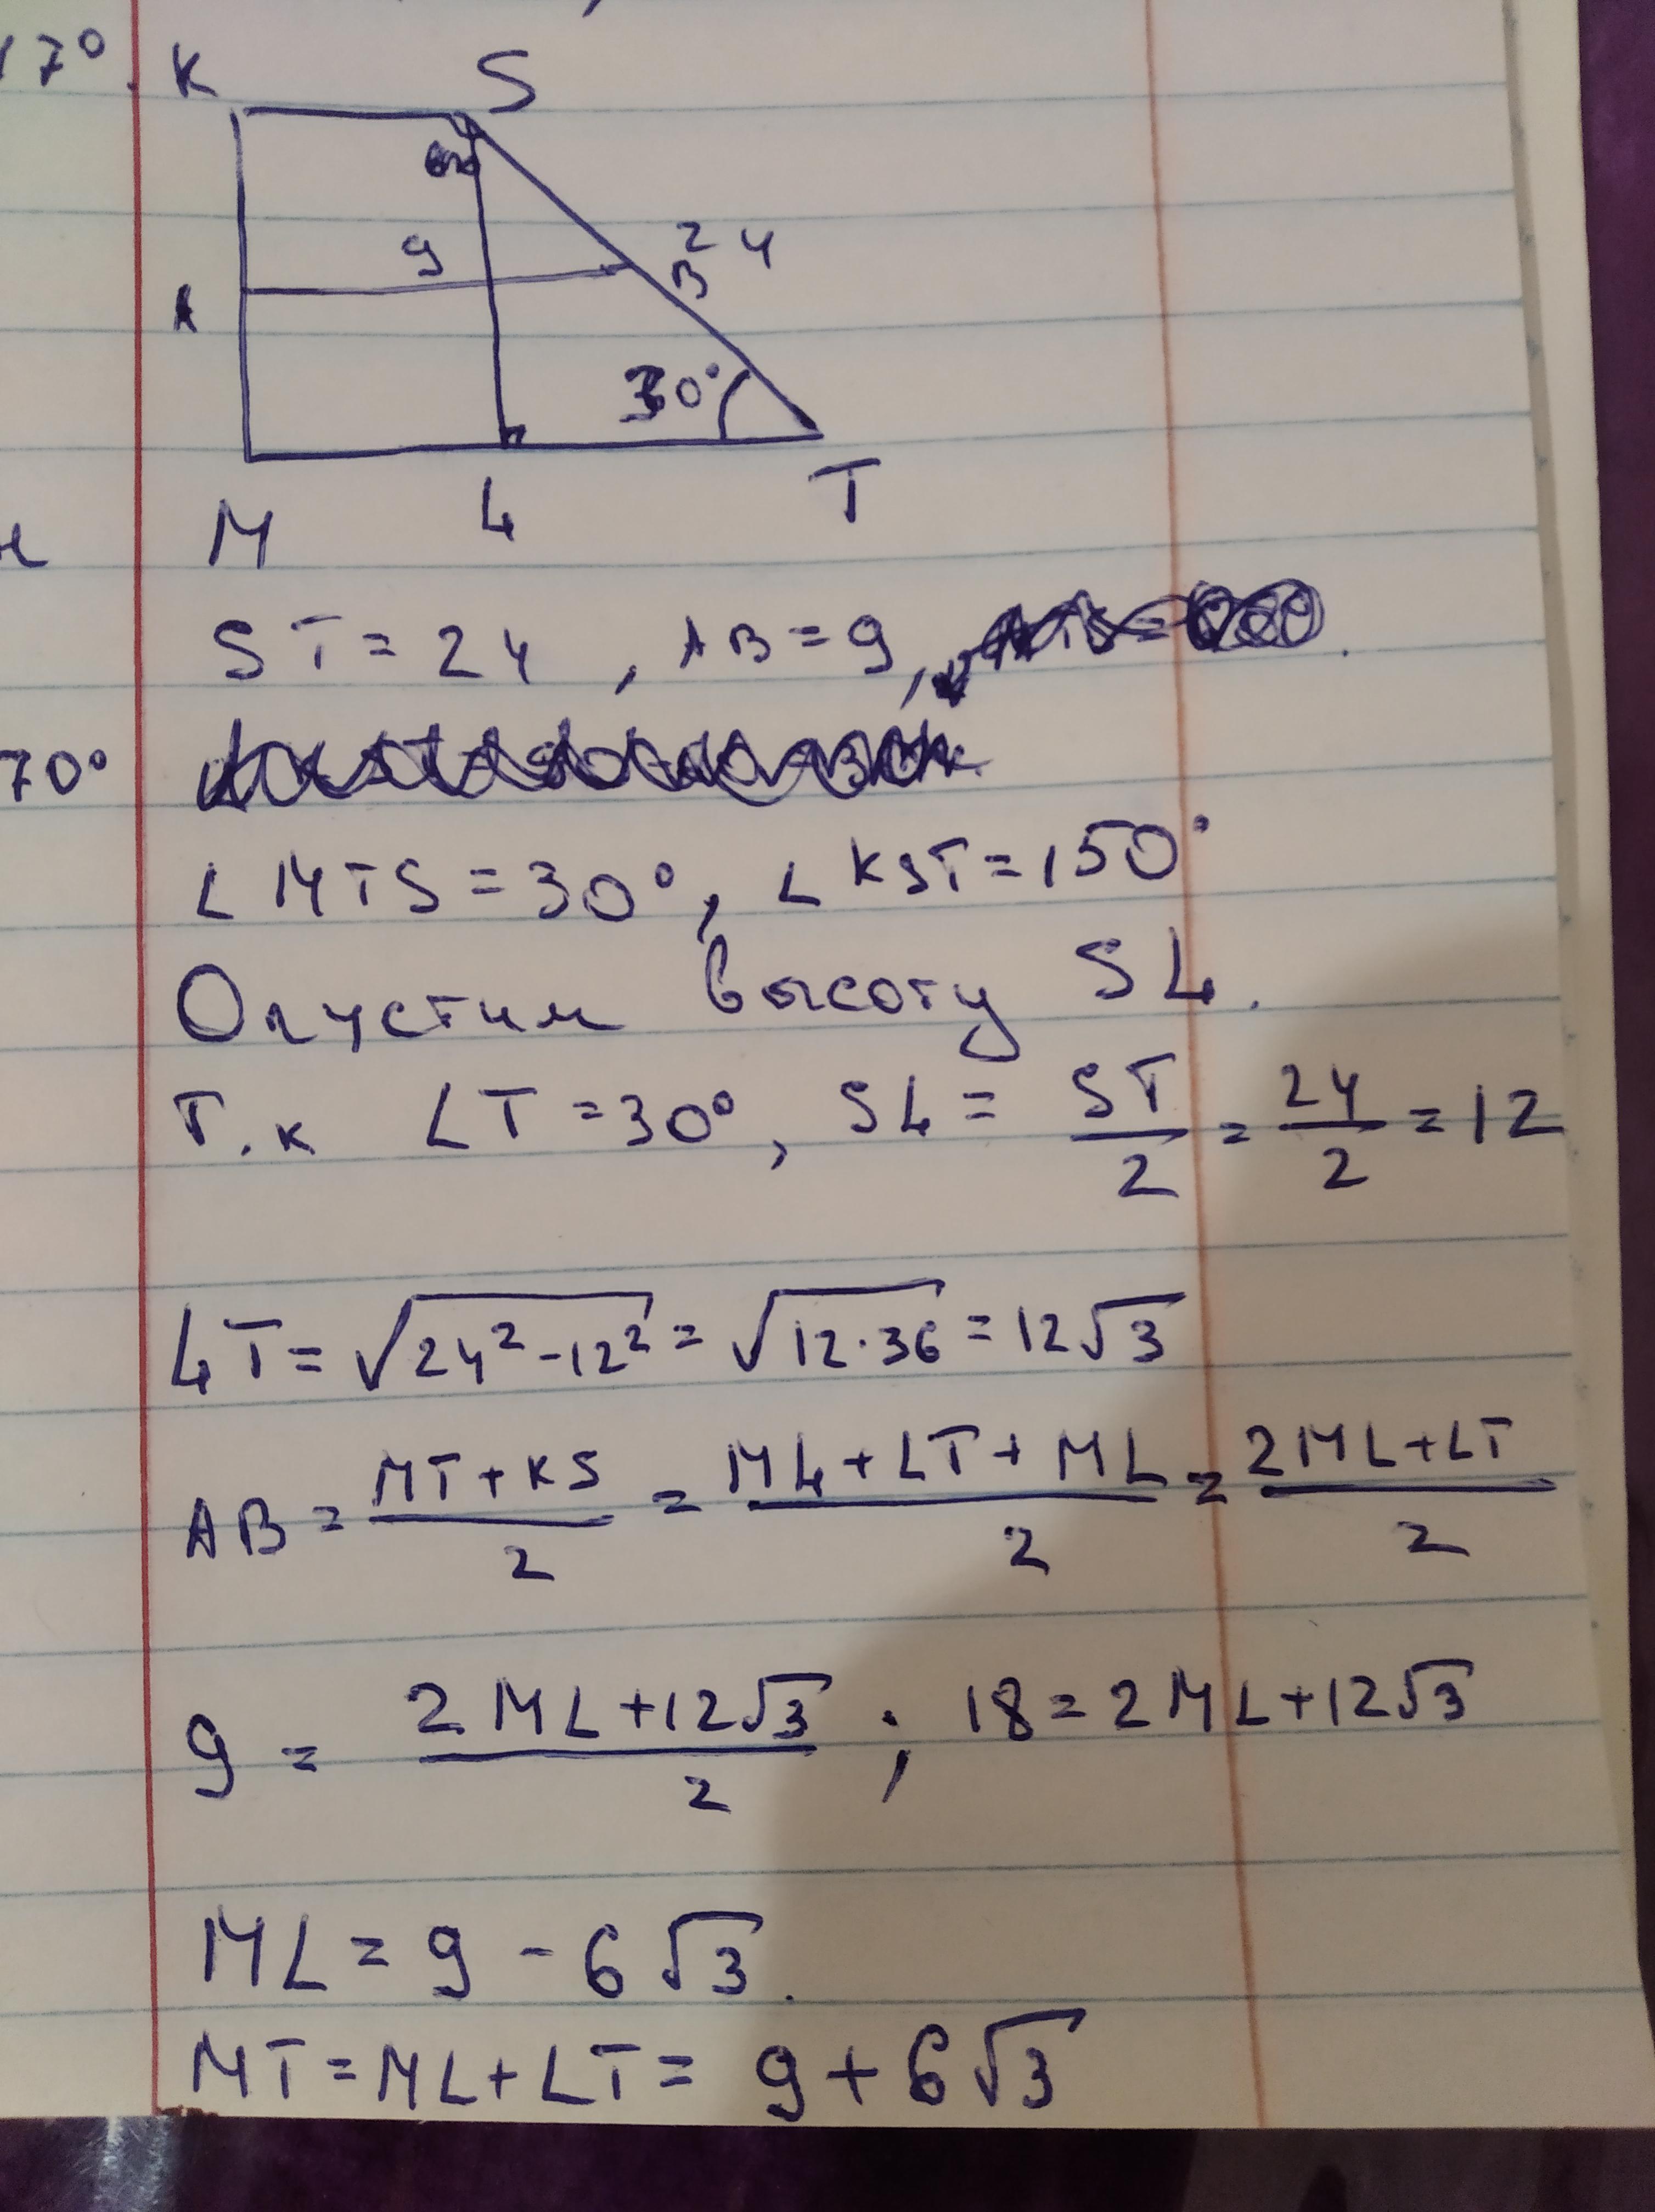 17°
K S
9
24
A B
30°
M L T
и
ST = 24, AB = 9,
70°
∠MTS = 30°, ∠KST = 150°
Опустим высоту SL.
Т.к ∠T = 30°, SL = ST/2 = 24/2 = 12
LT = √(24² - 12²) = √(12·36) = 12√3
AB = (MT + KS)/2 = (ML + LT + ML)/2 = (2ML + LT)/2
9 = (2ML + 12√3)/2 ; 18 = 2ML + 12√3
ML = 9 - 6√3.
MT = ML + LT = 9 + 6√3